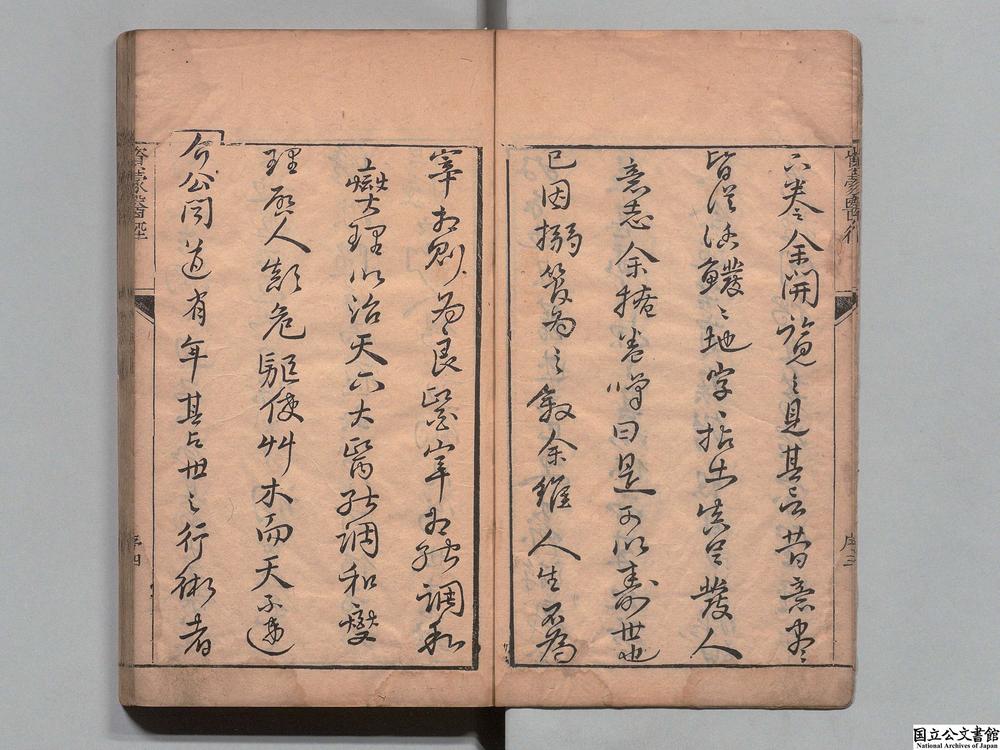 六卷余開覽之見其言昔意盡
皆從活鱍鱍地字拈出真足發人
意志余掩卷嘆曰是可以壽世也
已因搦管為之敘余維人生不為
宰相則為良醫宰相能調和
燮理以治天下大醫能調和燮
理起人顛危驅使艸木而天不違
今公聞道有年其占世之行術者
序三
序四
国立公文書館
National Archives of Japan